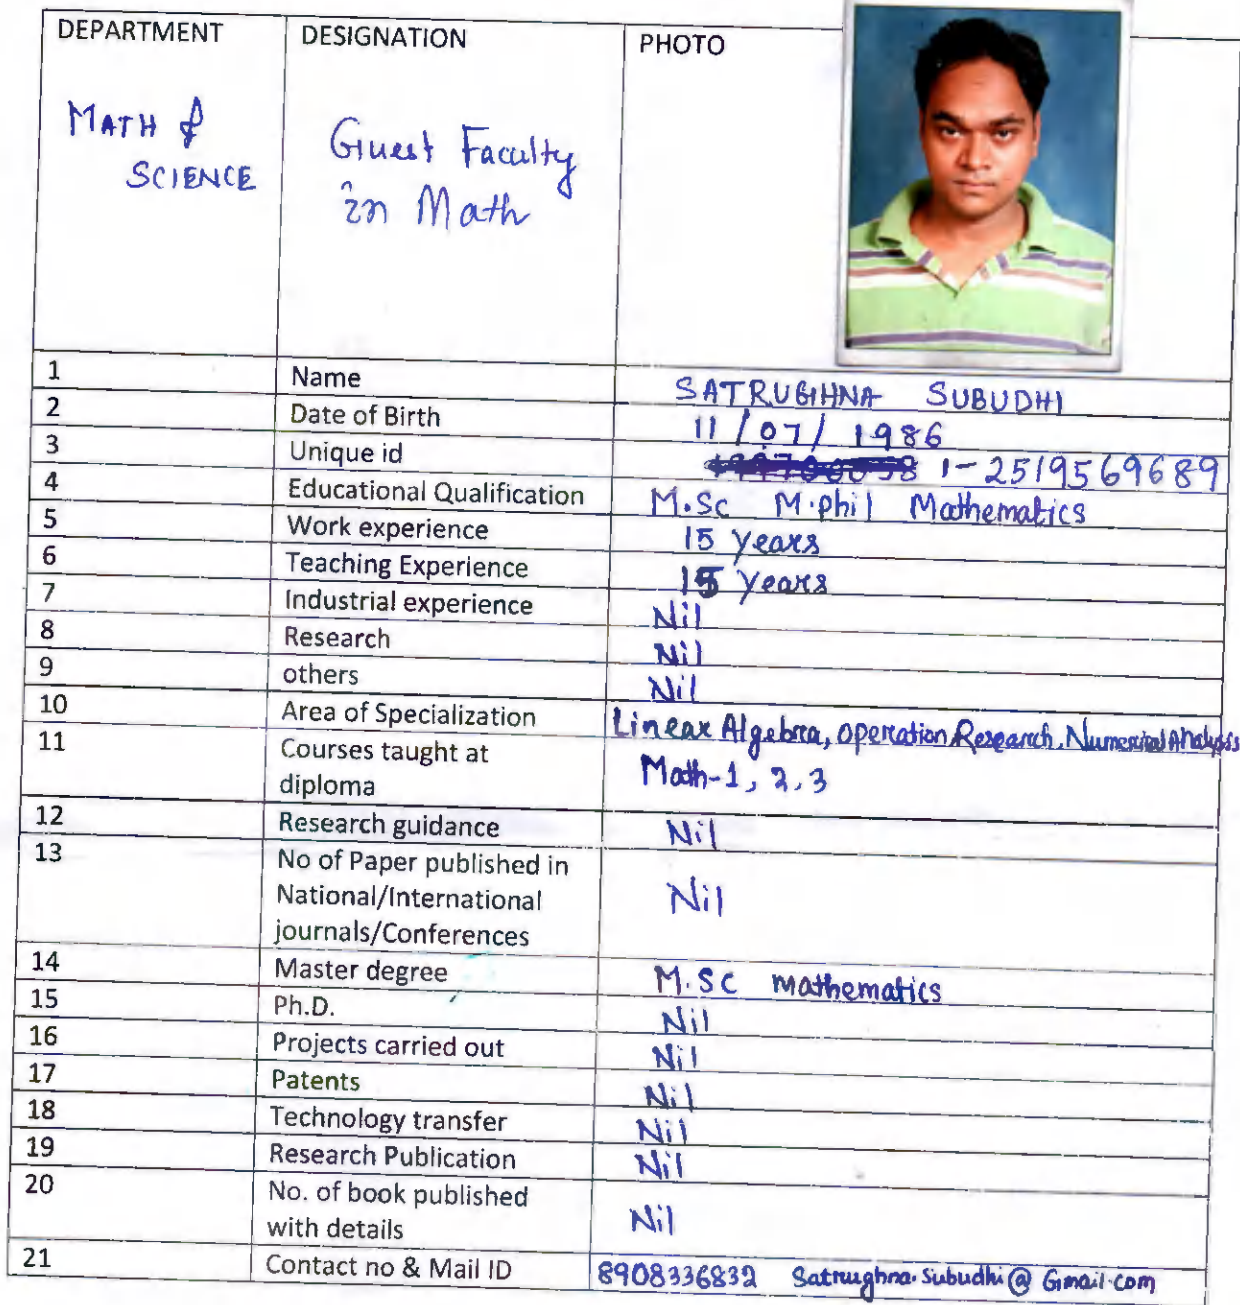 DEPARTMENT DESIGNATION PHOTO
MATH & Guest Faculty
SCIENCE in Math
1 Name SATRUGHNA SUBUDHI
2 Date of Birth 11/07/1986
3 Unique id 1-2519569689
4 Educational Qualification M.Sc M.phil Mathematics
5 Work experience 15 years
6 Teaching Experience 15 years
7 Industrial experience Nil
8 Research Nil
9 others Nil
10 Area of Specialization Linear Algebra, operation Research, Numerical Analysis
11 Courses taught at Math-1, 2, 3
diploma
12 Research guidance Nil
13 No of Paper published in
National/International Nil
journals/Conferences
14 Master degree M.SC mathematics
15 Ph.D. Nil
16 Projects carried out Nil
17 Patents Nil
18 Technology transfer Nil
19 Research Publication Nil
20 No. of book published
with details Nil
21 Contact no & Mail ID 8908336832 Satrughna.Subudhi@Gmail.com